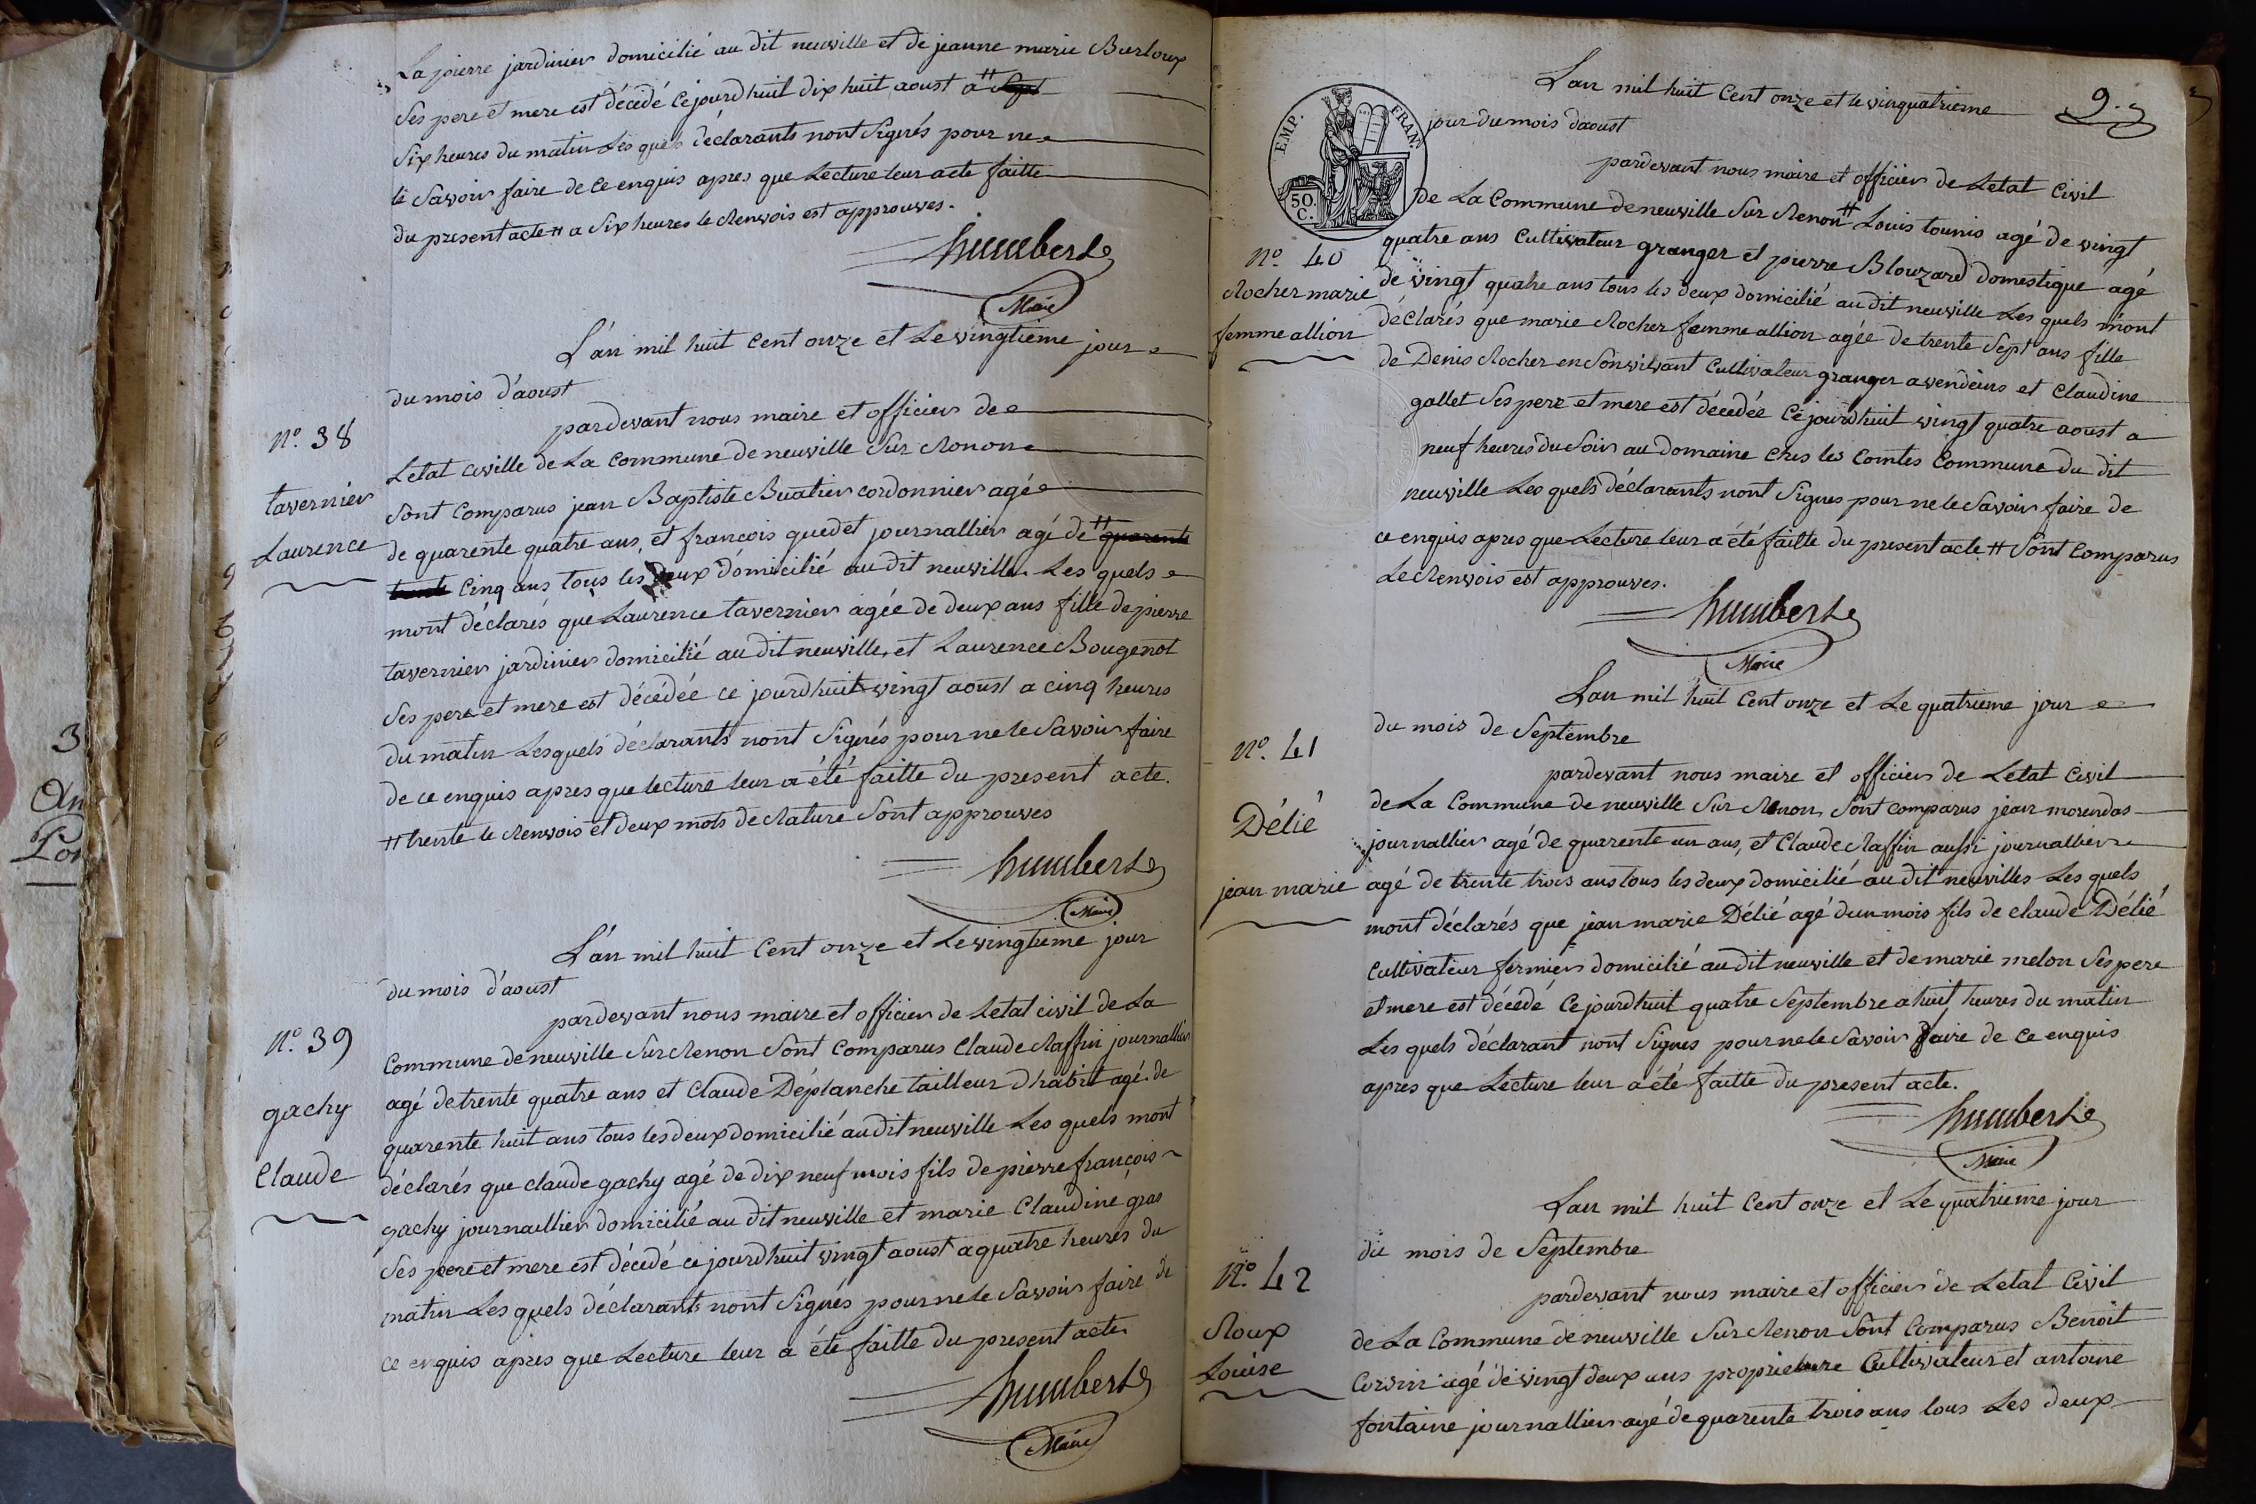 La pierre jardinier domicilié au dit neuville et de jeanne marie Burloup
Ses pere et mere est décédé Ce jourdhuit dix huit aoust a #
Six heures du matin Les quels déclarants nont Signés pour ne
le Savoir faire de Ce enquis apres que Lecture leur a ete faitte
du present acte # a Six heures le Renvois est approuves.
humbert
Maire
L'an mil huit Cent onze et Le vingtieme jour
du mois d'aoust
pardevant nous maire et officier de
N.º 38
Letat civille de La Commune de neuville Sur Renon
tavernier
Sont Comparus jean Baptiste Buatier cordonnier agé
Laurence
de quarente quatre ans, et francois quedet journallier agé de # quarente
trente Cinq ans tous les deux domicilié au dit neuville Les quels
mont déclarés que Laurence tavernier agée de deux ans fille de pierre
tavernier jardinier domicilié au dit neuville, et Laurence Bougenot
Ses pere et mere est décédée ce jourdhuit vingt aoust a cinq heures
du matin Lesquels déclarants nont Signés pour ne le Savoir faire
de ce enquis apres que lecture leur a été faitte du present acte.
# trente le Renvois et deux mots de Rature Sont approuves
humbert
Maire
L'an mil huit Cent onze et Le vingtieme jour
du mois d'aoust
pardevant nous maire et officier de Letat civil de La
N.º 39
Commune de neuville Sur Renon Sont Comparus Claude Raffin journallier
gachy
agé de trente quatre ans et Claude Déplanche tailleur d habit agé de
quarente huit ans tous les deux domicilié au dit neuville Les quels mont
Claude
déclarés que claude gachy agé de dix neuf mois fils de pierre françois
gachy journallier domicilié au dit neuville et marie Claudine gras
Ses pere et mere est décédé ce jourdhuit vingt aoust a quatre heures du
matin Les quels déclarants nont Signés pour ne le Savoir faire de
ce enquis apres que Lecture leur a été faitte du present acte
humbert
Maire
9.
Lan mil huit Cent onze et le vinquatrieme
jour du mois daoust
EMP. FRAN.
50. C.
pardevant nous maire et officier de Letat Civil
de La Commune de neuville Sur Renon # Louis tounis agé de vingt
N.º 40
quatre ans Cultivateur granger et pierre Blouzard domestique agé
Rocher marie
de vingt quatre ans tous les deux domicilié au dit neuville Les quels mont
femme allion
déclarés que marie Rocher femme allion agée de trente Sept ans fille
de Denis Rocher en Son vivant Cultivateur granger a vendeins et Claudine
gallet Ses pere et mere est décedée Ce jourdhuit vingt quatre aoust a
neuf heures du Soir au domaine Ches les Comtes Commune du dit
neuville Les quels déclarants nont Signes pour ne le Savoir faire de
ce enquis apres que Lecture leur a été faitte du present acte # Sont Comparus
Le Renvois est approuves.
humbert
Maire
Lan mil huit Cent onze et Le quatrieme jour
du mois de Septembre
N.º 41
pardevant nous maire et officier de Letat Civil
de La Commune de neuville Sur Renon, Sont Comparus jean morendas
Délié
journallier agé de quarente un ans, et Claude Raffin aussi journallier
jean marie
agé de trente trois ans tous les deux domicilié au dit neuvilles Les quels
mont déclarés que jean marie Délié agé dun mois fils de claude Délié
Cultivateur fermier domicilié au dit neuville et de marie melon Ses pere
et mere est décedé Ce jourdhuit quatre Septembre a huit heures du matin
Les quels déclarant nont Signes pour ne le Savoir faire de Ce enquis
apres que Lecture leur a été faitte du present acte.
humbert
Maire
Lan mil huit Cent onze et Le quatrieme jour
du mois de Septembre
N.º 42
pardevant nous maire et officier de Letat Civil
Roux
de La Commune de neuville Sur Renon Sont Comparus Benoit
Louise
Corsin agé de vingt deux ans proprietaire Cultivateur et antoine
fontaine journallier agé de quarente trois ans tous Les deux